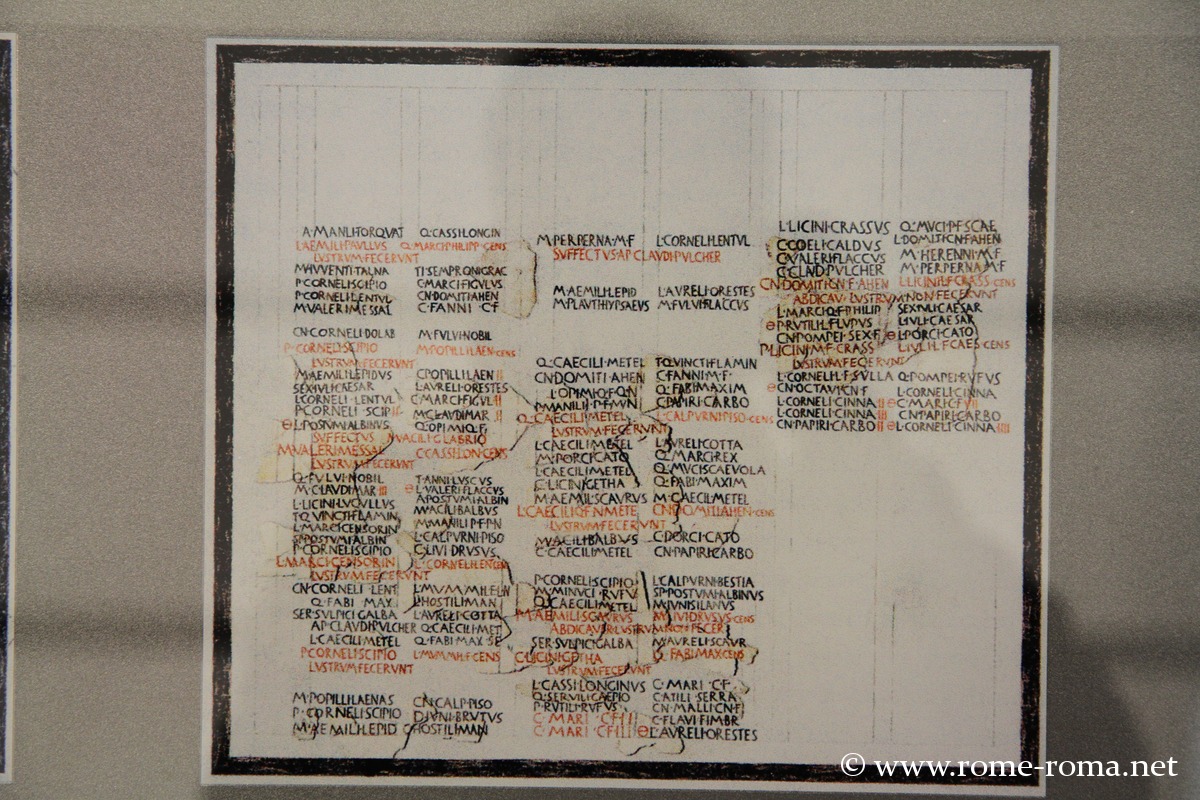 A·MANLI·TORQVAT Q·CASSI·LONGIN
L·AEMILI·PAVLLVS Q·MARCI·PHILIPP·CENS
LVSTRVM·FECERVNT
M·IVVENTI·TALNA TI·SEMPRONI·GRAC
P·CORNELI·SCIPIO C·MARCI·FIGVLVS
P·CORNELI·LENTVL CN·DOMITI·AHEN
M·VALERI·MESSAL C·FANNI·C·F
CN·CORNELI·DOLAB M·FVLVI·NOBIL
P·CORNELI·SCIPIO M·POPILLI·LAEN·CENS
LVSTRVM·FECERVNT
M·AEMILI·LEPIDVS C·POPILLI·LAEN II
SEX·IVLI·CAESAR L·AVRELI·ORESTES
L·CORNELI·LENTVL C·MARCI·FIGVL II
P·CORNELI·SCIP II M·CLAVDI·MAR II
Θ L·POSTVMI·ALBINVS Q·OPIMIO·Q·F
SVFFECTVS MVACILI·GLABRIO
M·VALERI·MESSAL C·CASSI·LON·CENS
LVSTRVM·FECERVNT
Q·FVLVI·NOBIL T·ANNI·LVSCVS
M·CLAVDI·MAR III Θ L·VALERI·FLACCVS
L·LICINI·LVCVLLVS A·POSTVMI·ALBIN
T·QVINCTI·FLAMIN M·ACILI·BALBVS
L·MARCI·CENSORIN M·MANILI·P·F·P·N
SP·POSTVMI·ALBIN L·CALPVRNI·PISO
P·CORNELI·SCIPIO C·LIVI·DRVSVS
L·MARCI·CENSORIN L·CORNELI·LEN·CEN
LVSTRVM·FECERVNT
CN·CORNELI·LENT L·MVMMI·L·F·L·N
Q·FABI·MAXI L·HOSTILI·MAN
SER·SVLPICI·GALBA L·AVRELI·COTTA
AP·CLAVDI·PVLCHER Q·CAECILI·MET
L·CAECILI·METEL Q·FABI·MAX·SE
P·CORNELI·SCIPIO L·MVMMI·F·CENS
LVSTRVM·FECERVNT
M·POPILLI·LAENAS CN·CALP·PISO
P·CORNELI·SCIPIO D·IVNI·BRVTVS
M·AEMILI·LEPID C·HOSTILI·MAN
M·PERPERNA·M·F L·CORNELI·LENTVL
SVFFECTVS·AP·CLAVDI·PVLCHER
M·AEMILI·LEPID L·AVRELI·ORESTES
M·PLAVTI·HYPSAEVS M·FVLVI·FLACCVS
Q·CAECILI·METEL T·QVINCTI·FLAMIN
CN·DOMITI·AHEN C·FANNI·M·F
L·OPIMI·Q·F·Q·N Q·FABI·MAXIM
M·MANILI·P·F·M·N C·PAPIRI·CARBO
Q·CAECILI·METEL L·CALPVRNI·PISO·CENS
LVSTRVM·FECERVNT
L·CAECILI·METEL L·AVRELI·COTTA
M·PORCI·CATO Q·MARCI·REX
L·CAECILI·METEL Q·MVCI·SCAEVOLA
C·LICINI·GETHA Q·FABI·MAXIM
M·AEMIL·SCAVRVS M·CAECIL·METEL
L·CAECILI·Q·F·N·METE CN·DOMITI·AHEN·CENS
LVSTRVM·FECERVNT
M·ACILI·BALBVS C·PORCI·CATO
C·CAECILI·METEL CN·PAPIRI·CARBO
P·CORNELI·SCIPIO L·CALPVRNI·BESTIA
M·MINVCI·RVFV SP·POSTVMI·ALBINVS
Q·CAECILI·METEL M·IVNI·SILANVS
M·AEMILI·SCAVRVS M·LIVI·DRVSVS·CENS
ABDICAVER·LVSTRVM·NON·FECER
SER·SVLPICI·GALBA M·AVRELI·SCAVR
C·LICINI·GETHA Q·FABI·MAX·CENS
LVSTRVM·FECERVNT
L·CASSI·LONGINVS C·MARI·C·F
Q·SERVILI·CAEPIO C·ATILI·SERRA
P·RVTILI·RVFVS CN·MALLI·CN·F
C·MARI·C·F II C·FLAVI·FIMBR
C·MARI·C·F III Θ L·AVRELI·ORESTES
L·LICINI·CRASSVS Q·MVCI·P·F·SCAE
C·COELI·CALDVS L·DOMITI·CN·F·AHEN
C·VALERI·FLACCVS M·HERENNI·M·F
C·CLAVD·PVLCHER M·PERPERNA·M·F
CN·DOMITI·CN·F·AHEN L·LICINI·L·F·CRASS·CENS
ABDICAV·LVSTRVM·NON·FECERVNT
L·MARCI·Q·F·PHILIP SEX·IVLI·CAESAR
Θ P·RVTILI·L·F·LVPVS L·IVLI·CAESAR
CN·POMPEI·SEX·F Θ L·PORCI·CATO
P·LICINI·M·F·CRASS L·IVLI·L·F·CAES·CENS
LVSTRVM·FECERVNT
L·CORNELI·L·F·SVLLA Q·POMPEI·RVFVS
Θ CN·OCTAVI·CN·F L·CORNELI·CINNA
L·CORNELI·CINNA II Θ C·MARI·C·F VII
L·CORNELI·CINNA III CN·PAPIRI·CARBO
CN·PAPIRI·CARBO II Θ L·CORNELI·CINNA IIII
© www.rome-roma.net